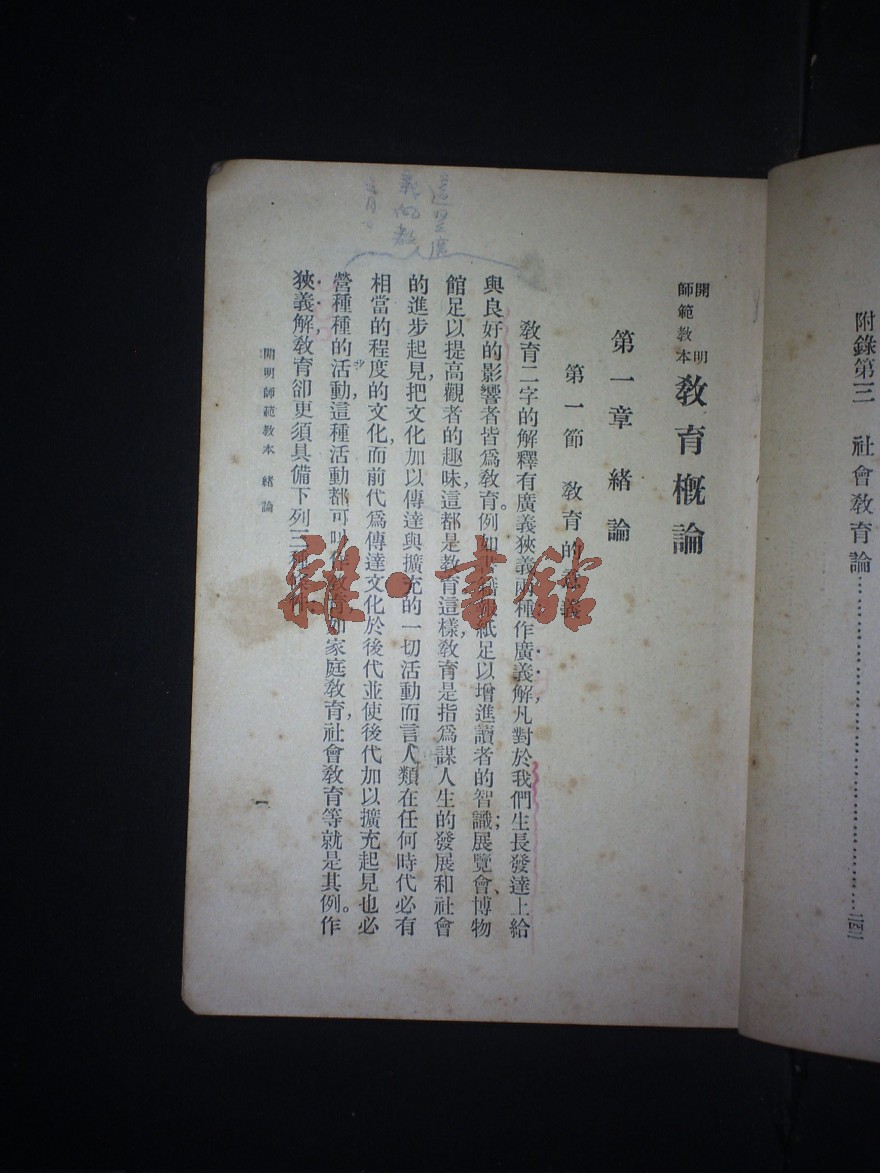 附錄第三 社會教育論……………………二四二
開明
師範教本
教育概論
第一章 緒論
第一節 教育的意義
教育二字的解釋有廣義狹義兩種作廣義解,凡對於我們生長發達上給
與良好的影響者皆爲教育。例如書籍報紙足以增進讀者的智識;展覽會、博物
館足以提高觀者的趣味,這都是教育,這樣教育是指爲謀人生的發展和社會
的進步起見,把文化加以傳達與擴充的一切活動而言。人類在任何時代必有
相當的程度的文化,而前代爲傳達文化於後代並使後代加以擴充起見,也必
營種種的活動,這種活動都可叫作教育,如家庭教育,社會教育等就是其例。作
狹義解,教育卻更須具備下列三種
開明師範教本 緒論
一
這是廣
義的教
雜·書館